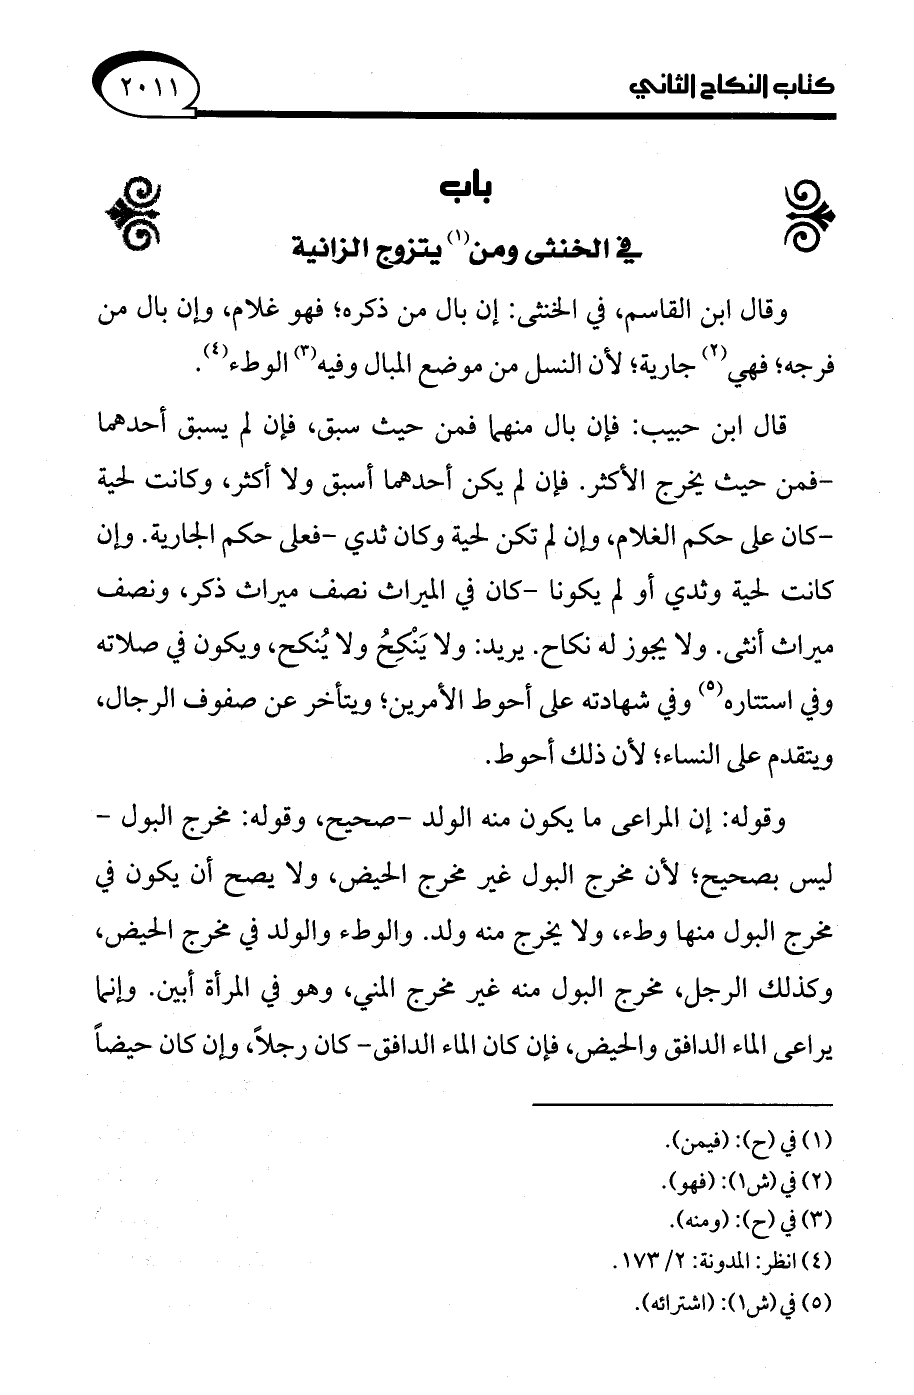 كتاب النكاح الثاني
٢٠١١
باب
في الخنثى ومن(١) يتزوج الزانية
وقال ابن القاسم، في الخنثى: إن بال من ذكره؛ فهو غلام، وإن بال من
فرجه؛ فهي(٢) جارية؛ لأن النسل من موضع المبال وفيه(٣) الوطء(٤).
قال ابن حبيب: فإن بال منهما فمن حيث سبق، فإن لم يسبق أحدهما
-فمن حيث يخرج الأكثر. فإن لم يكن أحدهما أسبق ولا أكثر، وكانت لحية
-كان على حكم الغلام، وإن لم تكن لحية وكان ثدي -فعلى حكم الجارية. وإن
كانت لحية وثدي أو لم يكونا -كان في الميراث نصف ميراث ذكر، ونصف
ميراث أنثى. ولا يجوز له نكاح. يريد: ولا يَنْكِحُ ولا يُنكح، ويكون في صلاته
وفي استتاره(٥) وفي شهادته على أحوط الأمرين؛ ويتأخر عن صفوف الرجال،
ويتقدم على النساء؛ لأن ذلك أحوط.
وقوله: إن المراعى ما يكون منه الولد -صحيح، وقوله: مخرج البول -
ليس بصحيح؛ لأن مخرج البول غير مخرج الحيض، ولا يصح أن يكون في
مخرج البول منها وطء، ولا يخرج منه ولد. والوطء والولد في مخرج الحيض،
وكذلك الرجل، مخرج البول منه غير مخرج المني، وهو في المرأة أبين. وإنما
يراعى الماء الدافق والحيض، فإن كان الماء الدافق- كان رجلاً، وإن كان حيضاً
(١) في (ح): (فيمن).
(٢) في (ش١): (فهو).
(٣) في (ح): (ومنه).
(٤) انظر: المدونة: ٢/ ١٧٣.
(٥) في (ش١): (اشترائه).